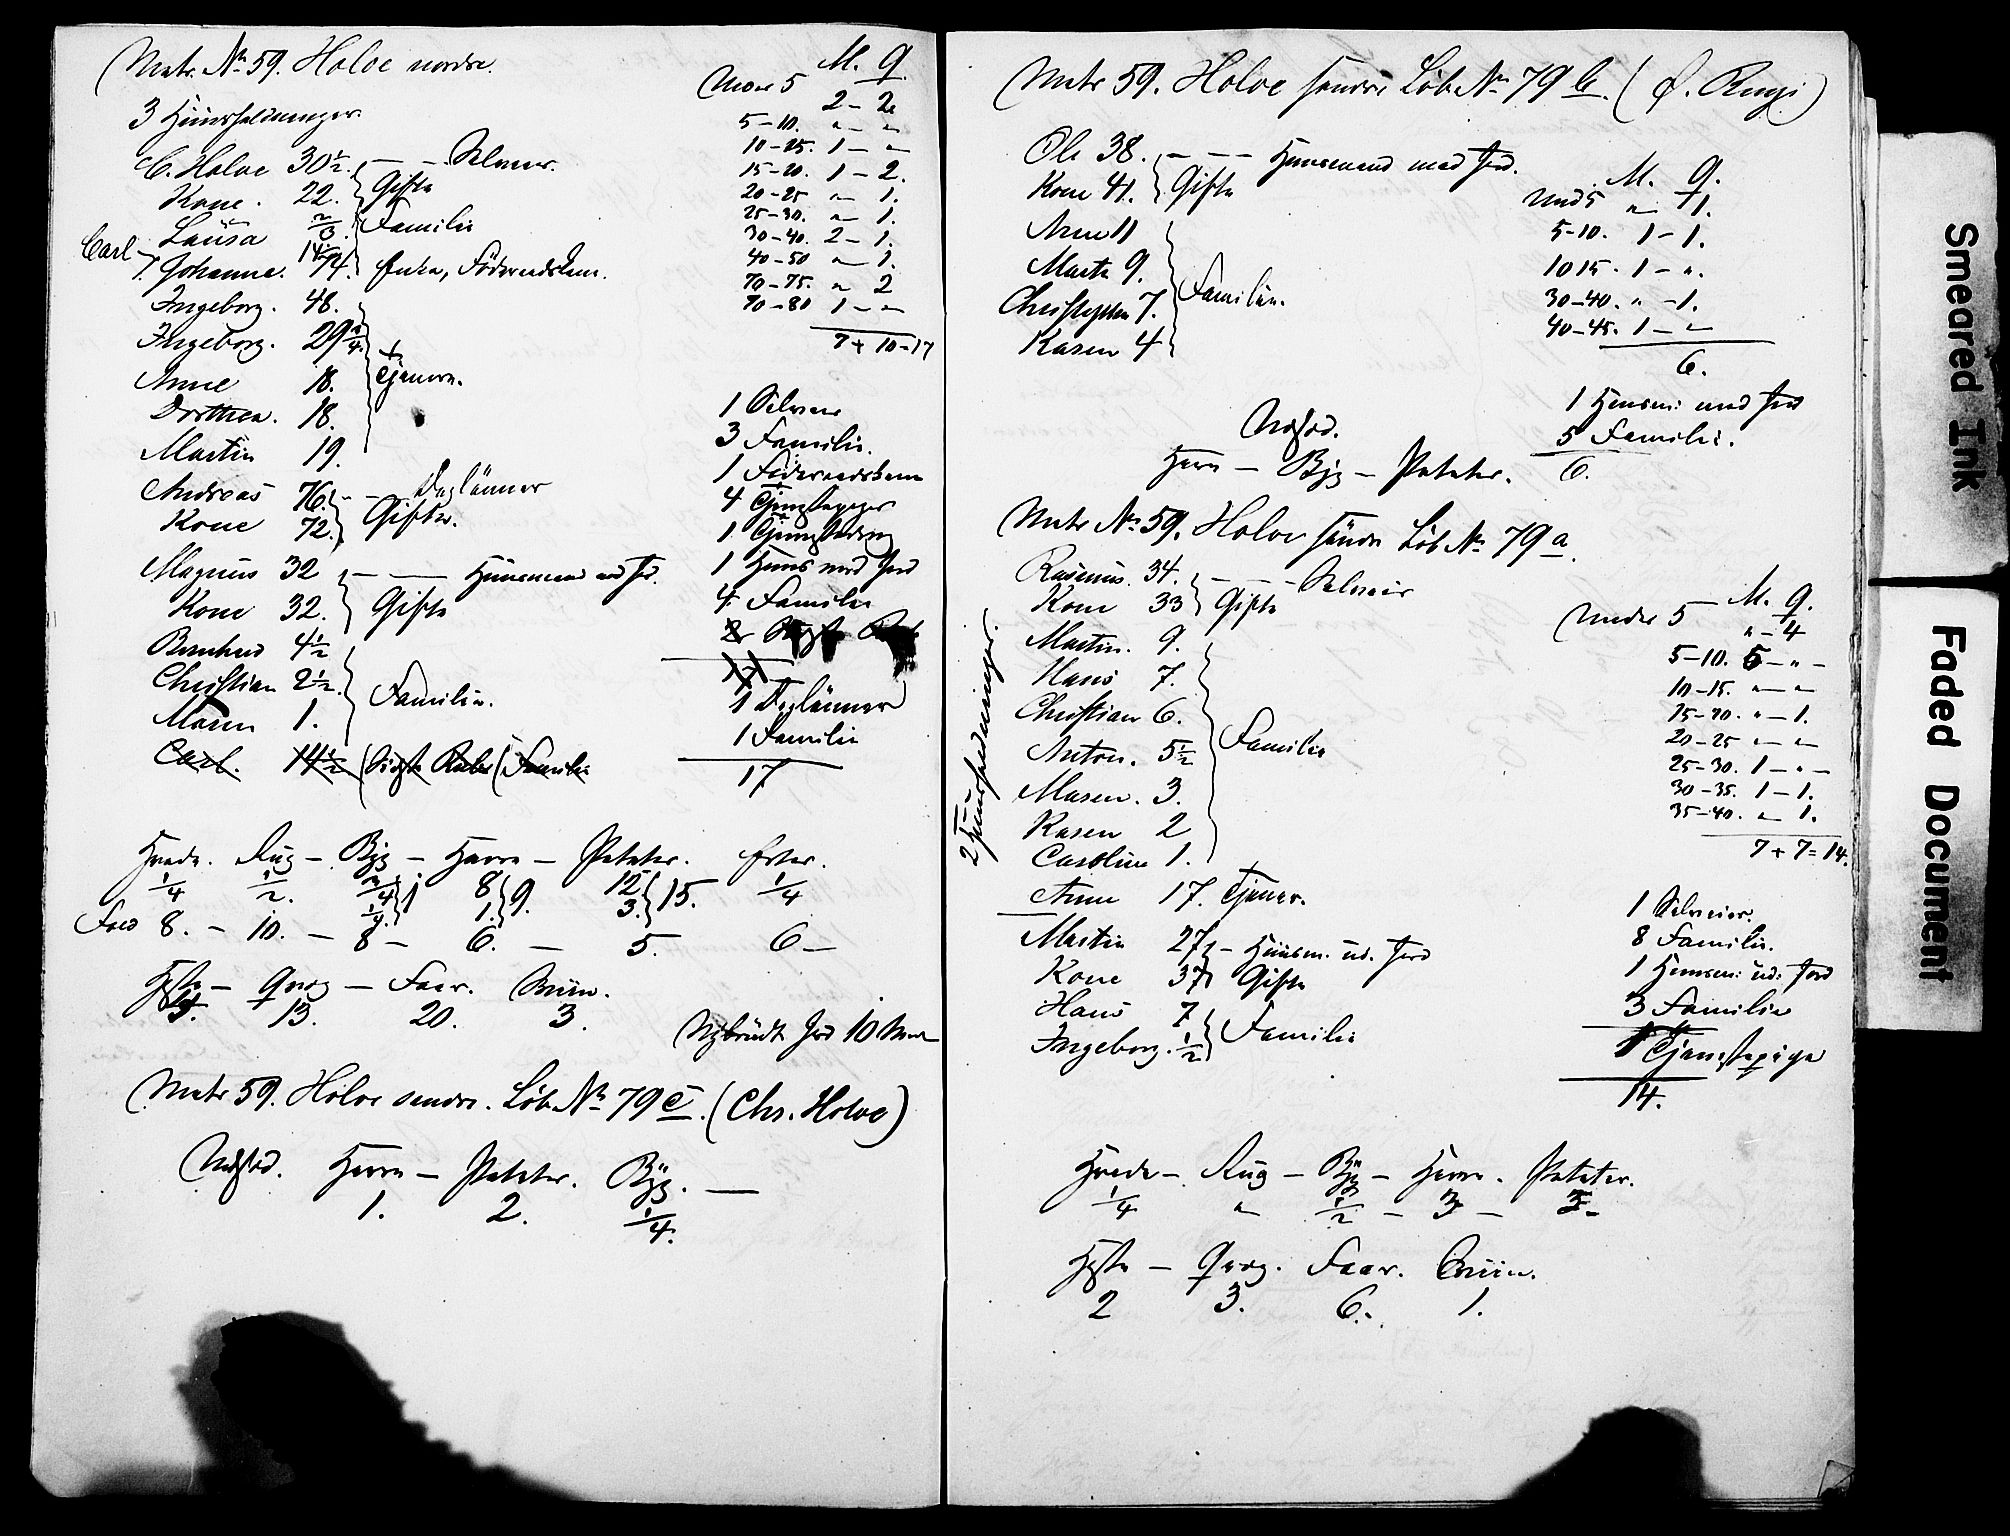 Matr. No 59. Holve nordre.
3 Huusholdninger.
C. Holve 30½. – – Selveier.
Kone. 22. Gifte
Laura 2/3. Familie
Carl 14½
Johanna. 74. Enke, Föderaadskone.
Ingeborg. 48.
Ingeborg. 29¾.
Anne 18. Tjenere.
Dorthea. 18.
Martin 19.
Andreas 76. – – Daglönner
Kone 72. Gifte.
Magnus 32 – – Huusmand med Jord.
Kone 32. Gifte
Bernhard 4½
Christian 2½. Familie.
Maren 1.
Carl. 14½ Familie
M. Q.
Under 5 2 – 2
5–10. " – "
10–15. 1 – "
15–20. 1 – 2.
20–25 " – 1.
25–30. " – 1.
30–40. 2 – 1.
40–50 " – 1.
70–75. " 2
70–80 1 – "
7 + 10 = 17
1 Selveier
3 Familie.
1 Föderaadskone
4 Tjenestepiger
1 Tjenestedreng
1 Huusm med Jord
4 Familie
17
1 Daglönner
1 Familie
17
Hvede. Rug – Byg – Havre – Poteter. Erter.
¼ ½. ¾ 1 8 9. 12 15. ¼
¼. 1. 3.
Fold 8. – 10. – 8 – 6. – 5. 6 –
Heste – Qvæg – Faar. Sviin.
13. 20. 3.
Nybrudt Jord 10 Maal
Matr 59. Holve söndre. Löb. No 79 c. (Chr. Holve)
Udsæd. Havre – Poteter. Byg. –
1. 2. ¼.
Matr 59. Holve söndre Löb. No 79 b. (
Ole 38. – – – Huusmand med Jord.
Kone 41. Gifte
Arne 11
Marte 9. Familie.
Christopher 7.
Karen 4
M. Q.
Und 5 " 1.
5–10. 1 – 1.
10 15. 1 – ".
30–40. " – 1.
40–45. 1 – "
6.
1 Huusm: med Jord
5 Familie.
6.
Udsæd.
Havre – Byg – Poteter.
Matr No 59. Holve söndre Löb No 79 a.
2 Huusholdninger.
Rasmus. 34. – – – Selveier
Kone 33 Gifte
Martin. 9.
Hans 7.
Christian 6.
Anton. 5½ Familie
Maren. 3.
Karen 2
Caroline 1.
Anne 17. Tjener.
Martin 27 – Huusm. ud. Jord
Kone 37 Gifte
Hans 7
Ingeborg. ½ Familie
M. Q.
Under 5 " – 4
5–10. 5 – " –
10–15. " – "
15–20. " – 1.
20–25 " – "
25–30. 1 – " –
30–35. 1 – 1.
35–40. " 1.
7 + 7 = 14.
1 Selveier.
8 Familie.
1 Huusm: ud: Jord
3 Familie
1 Tjenestepige
14.
Hvede – Rug – Byg – Havre. Poteter.
¼ " ½ – 3 – 3 –
Heste – Qvæg. Faar. Sviin.
2 3. 6. 1.
Smeared Ink
Faded Document